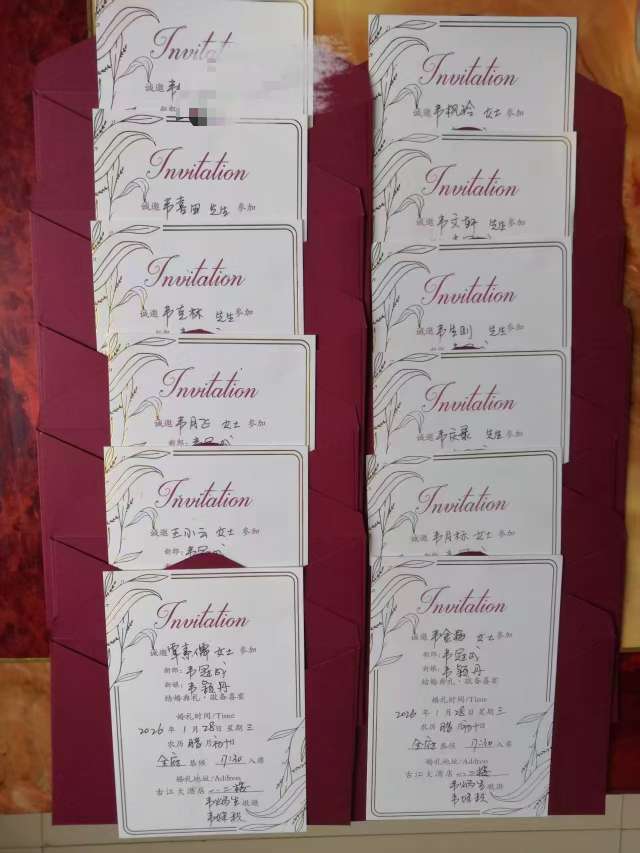 Invitation
诚邀 韦
Invitation
诚邀 韦喜田 先生 参加
Invitation
诚邀 韦克林 先生 参加
Invitation
诚邀 韦月飞 女士 参加
新郎:韦冠
Invitation
诚邀 王小云 女士 参加
新郎:韦冠
Invitation
诚邀 覃素 女士 参加
新郎:韦冠成
新娘:韦颖丹
结婚典礼·敬备喜宴
婚礼时间/Time
2026 年 1 月 28 日 星期 三
农历 腊 月 初十
全庭 恭候 17:30 入席
婚礼地址/Address
古江大酒店 二楼
韦炳 敬邀
韦
Invitation
诚邀 韦枫玲 女士 参加
Invitation
诚邀 韦文轩 先生 参加
Invitation
诚邀 韦生则 先生 参加
Invitation
诚邀 韦庆 先生 参加
Invitation
诚邀 韦月标 女士 参加
新郎:
Invitation
诚邀 韦金 女士 参加
新郎:韦冠成
新娘:韦颖丹
结婚典礼·敬备喜宴
婚礼时间/Time
2026 年 1 月 28 日 星期 三
农历 腊 月 初十
全庭 恭候 17:30 入席
婚礼地址/Address
古江大酒店 二楼
韦炳 敬邀
韦